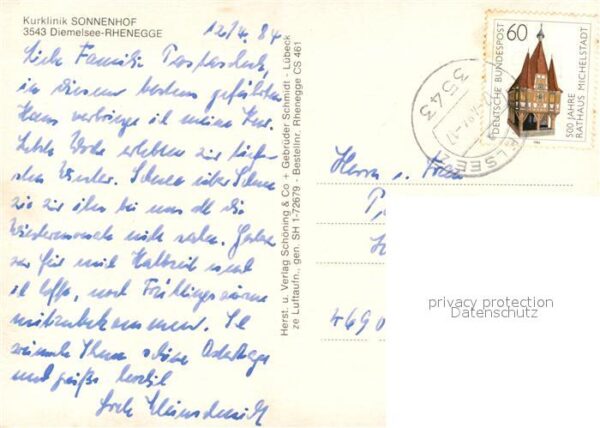 Kurklinik SONNENHOF
3543 Diemelsee-RHENEGGE
12/4. 84
Liebe Familie
in diesem bestens geführten
Haus verbringe ich meine Kur.
Letzte Woche erlebten wir
Winter. Schnee über Schnee
wie bei uns die
Wintermonate nicht
wir für mich Halbzeit und
ich hoffe, noch Frühlingswärme
mitzubekommen. Ich
wünsche Ihnen schöne Ostertage
und grüße herzlich
Kleinschmidt
Herst. u. Verlag Schöning & Co + Gebrüder Schmidt - Lübeck
ze Luftaufn., gen. SH 1-72679 - Bestellnr. Rhenegge CS 461
DEUTSCHE BUNDESPOST
60
500 JAHRE
RATHAUS MICHELSTADT
3543
Herrn u. Frau
privacy protection
Datenschutz
4690